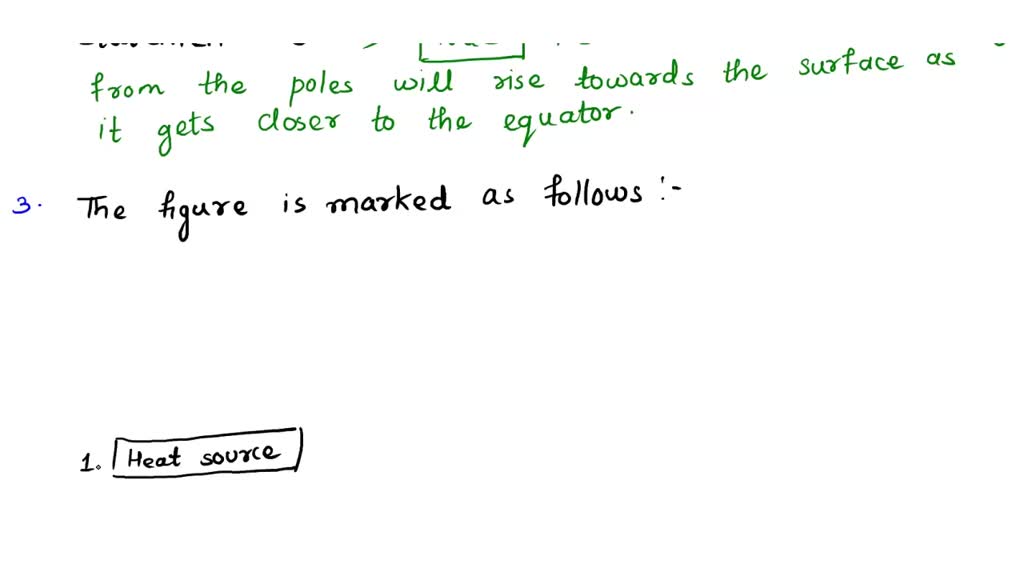 from the poles will rise towards the surface as
it gets closer to the equator.
3. The figure is marked as follows :-
1. Heat source